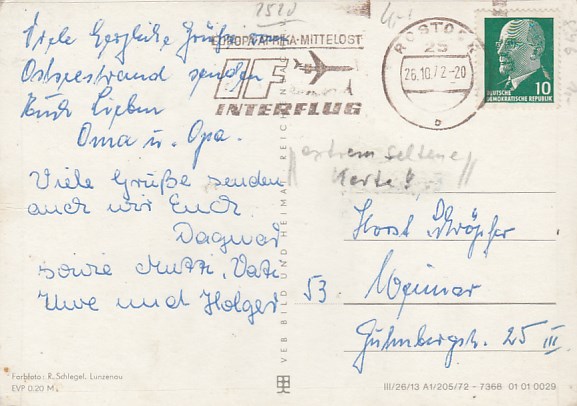 2520
Viele herzliche Grüße vom
Ostseestrand senden
Euch Lieben
Oma u. Opa.
Viele Grüße senden
auch wir Euch
Dagmar
sowie Mutti, Vati
Uwe und Holger
EUROPA·AFRIKA·MITTELOST
IF
INTERFLUG
ROSTOCK
25
26.10.72-20
b
10
DEUTSCHE
DEMOKRATISCHE REPUBLIK
"extrem seltene
Karte"
Horst
53 Weimar
Gutenbergstr. 25 III
VEB BILD UND HEIMAT REICHENBACH
Farbfoto: R. Schlegel, Lunzenau
EVP 0.20 M
III/26/13 A1/205/72 – 7368 01 01 0029